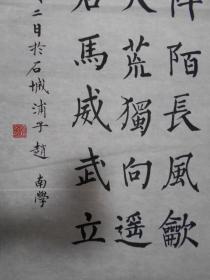 阡陌長風歙
人荒獨向遥
石馬威武立
二日於石城浦子趙南學